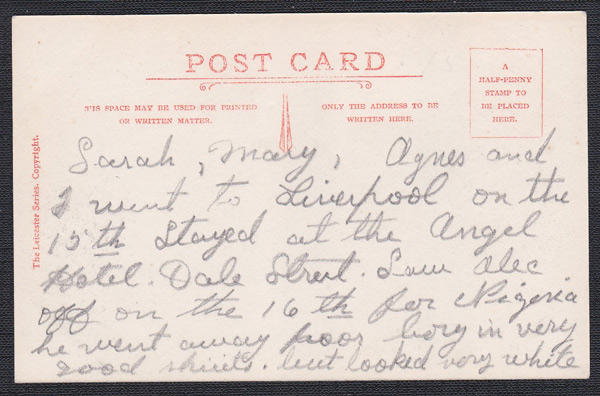 POST CARD
THIS SPACE MAY BE USED FOR PRINTED
OR WRITTEN MATTER.
ONLY THE ADDRESS TO BE
WRITTEN HERE.
A
HALF-PENNY
STAMP TO
BE PLACED
HERE.
The Leicester Series. Copyright.
Sarah, Mary, Agnes and
I went to Liverpool on the
15th Stayed at the Angel
Hotel. Dale Street. Saw Alec
off on the 16th for Nigeria
he went away poor boy in very
good spirits. but looked very white